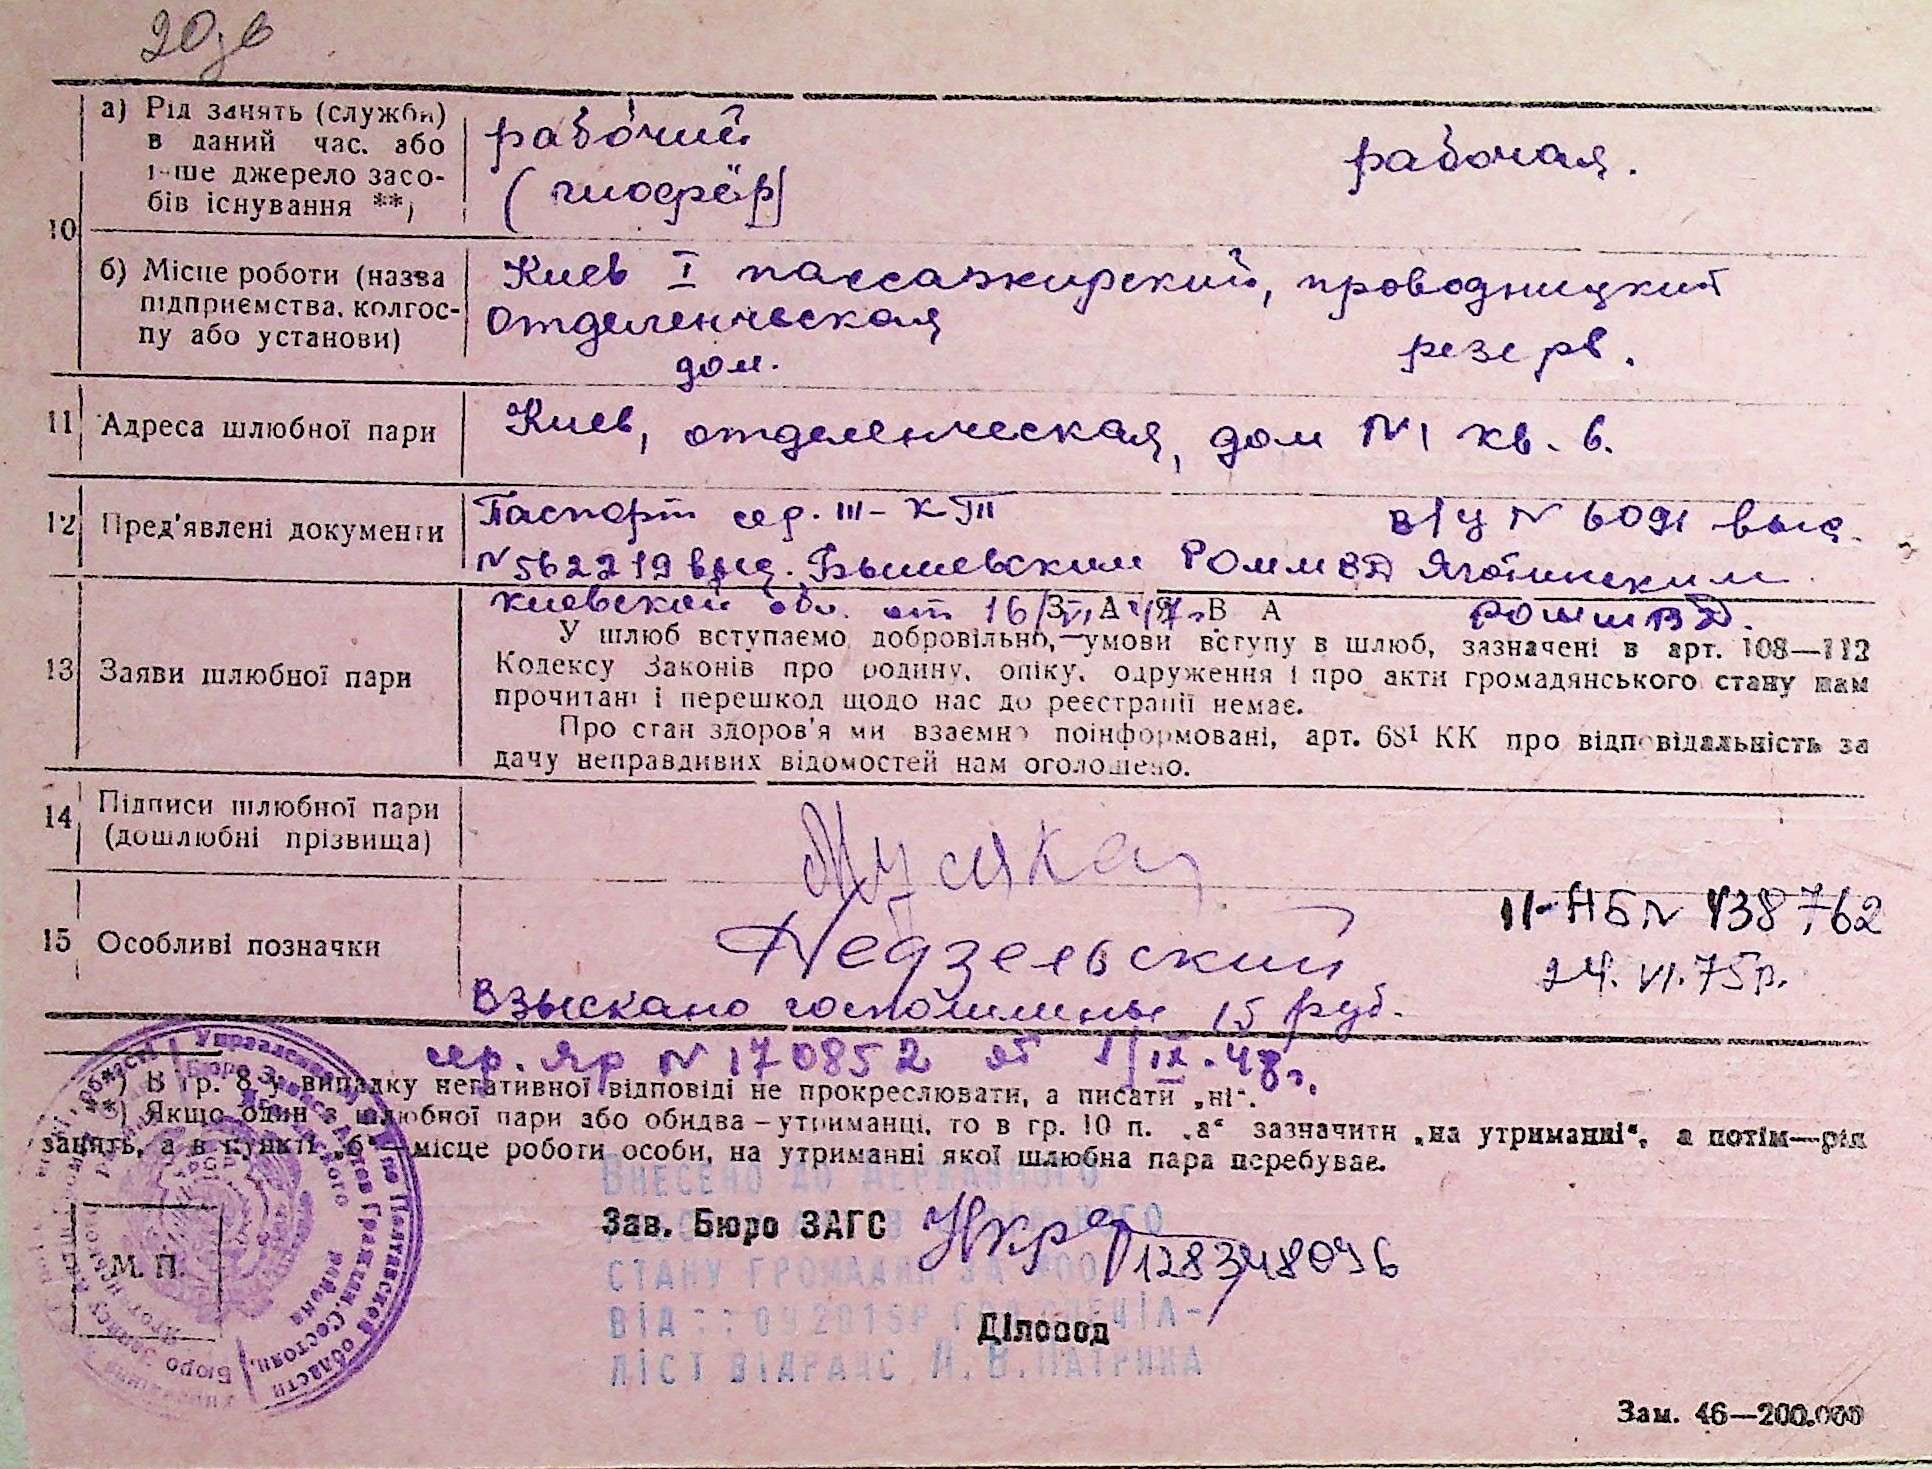 а) Рід занять (служби) в даний час. або інше джерело засобів існування **)
рабочий
(шофёр)
рабочая.
10
б) Місце роботи (назва підприємства, колгоспу або установи)
Киев I пассажирский,
отделенческая
дом.
проводницкий
резерв.
11 Адреса шлюбної пари
Киев, отделенческая, дом №1 кв. 6.
12 Пред'явлені документи
Паспорт сер. III-КП
№ 562219 выд. Бышевским РОММВД
киевской обл. от 16/
в/у № 6091 выд.
Яготинским
РОММВД.
13 Заяви шлюбної пари
З А Я В А
У шлюб вступаємо добровільно, умови вступу в шлюб, зазначені в арт. 108—112
Кодексу Законів про родину, опіку, одруження і про акти громадянського стану нам
прочитані і перешкод щодо нас до реєстрації немає.
Про стан здоров'я ми взаємно поінформовані, арт. 68¹ КК про відповідальність за
дачу неправдивих відомостей нам оголошено.
14 Підписи шлюбної пари
(дошлюбні прізвища)
15 Особливі позначки
Недзельский
II-НБ № 738762
24.VI.75р.
Взыскано госпошлины 15 руб.
сер. Яр № 170852 от 1/IX-48г.
*) В гр. 8 у випадку негативної відповіді не прокреслювати, а писати „ні“.
**) Якщо один з шлюбної пари або обидва – утриманці, то в гр. 10 п. „а“ зазначити „на утриманні“, а потім—рід
занять, а в пункті „б“—місце роботи особи, на утриманні якої шлюбна пара перебуває.
Внесено до державного
Зав. Бюро ЗАГС
128348096
стану громадян за
від
Діловод
ліст відрацс
М. П.
Зам. 46—200.000